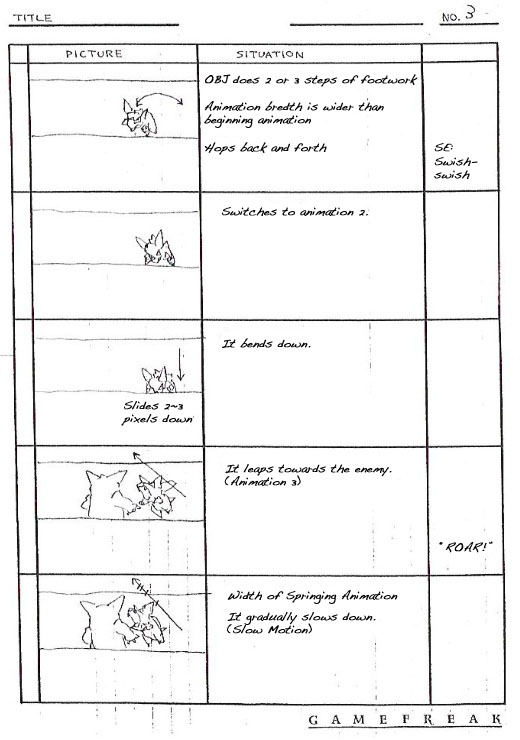 TITLE
NO. 3
PICTURE
SITUATION
OBJ does 2 or 3 steps of footwork
Animation bredth is wider than
beginning animation
Hops back and forth
SE:
Swish-
swish
Switches to animation 2.
It bends down.
Slides 2~3
pixels down
It leaps towards the enemy.
(Animation 3)
"ROAR!"
Width of Springing Animation
It gradually slows down.
(Slow Motion)
GAMEFREAK